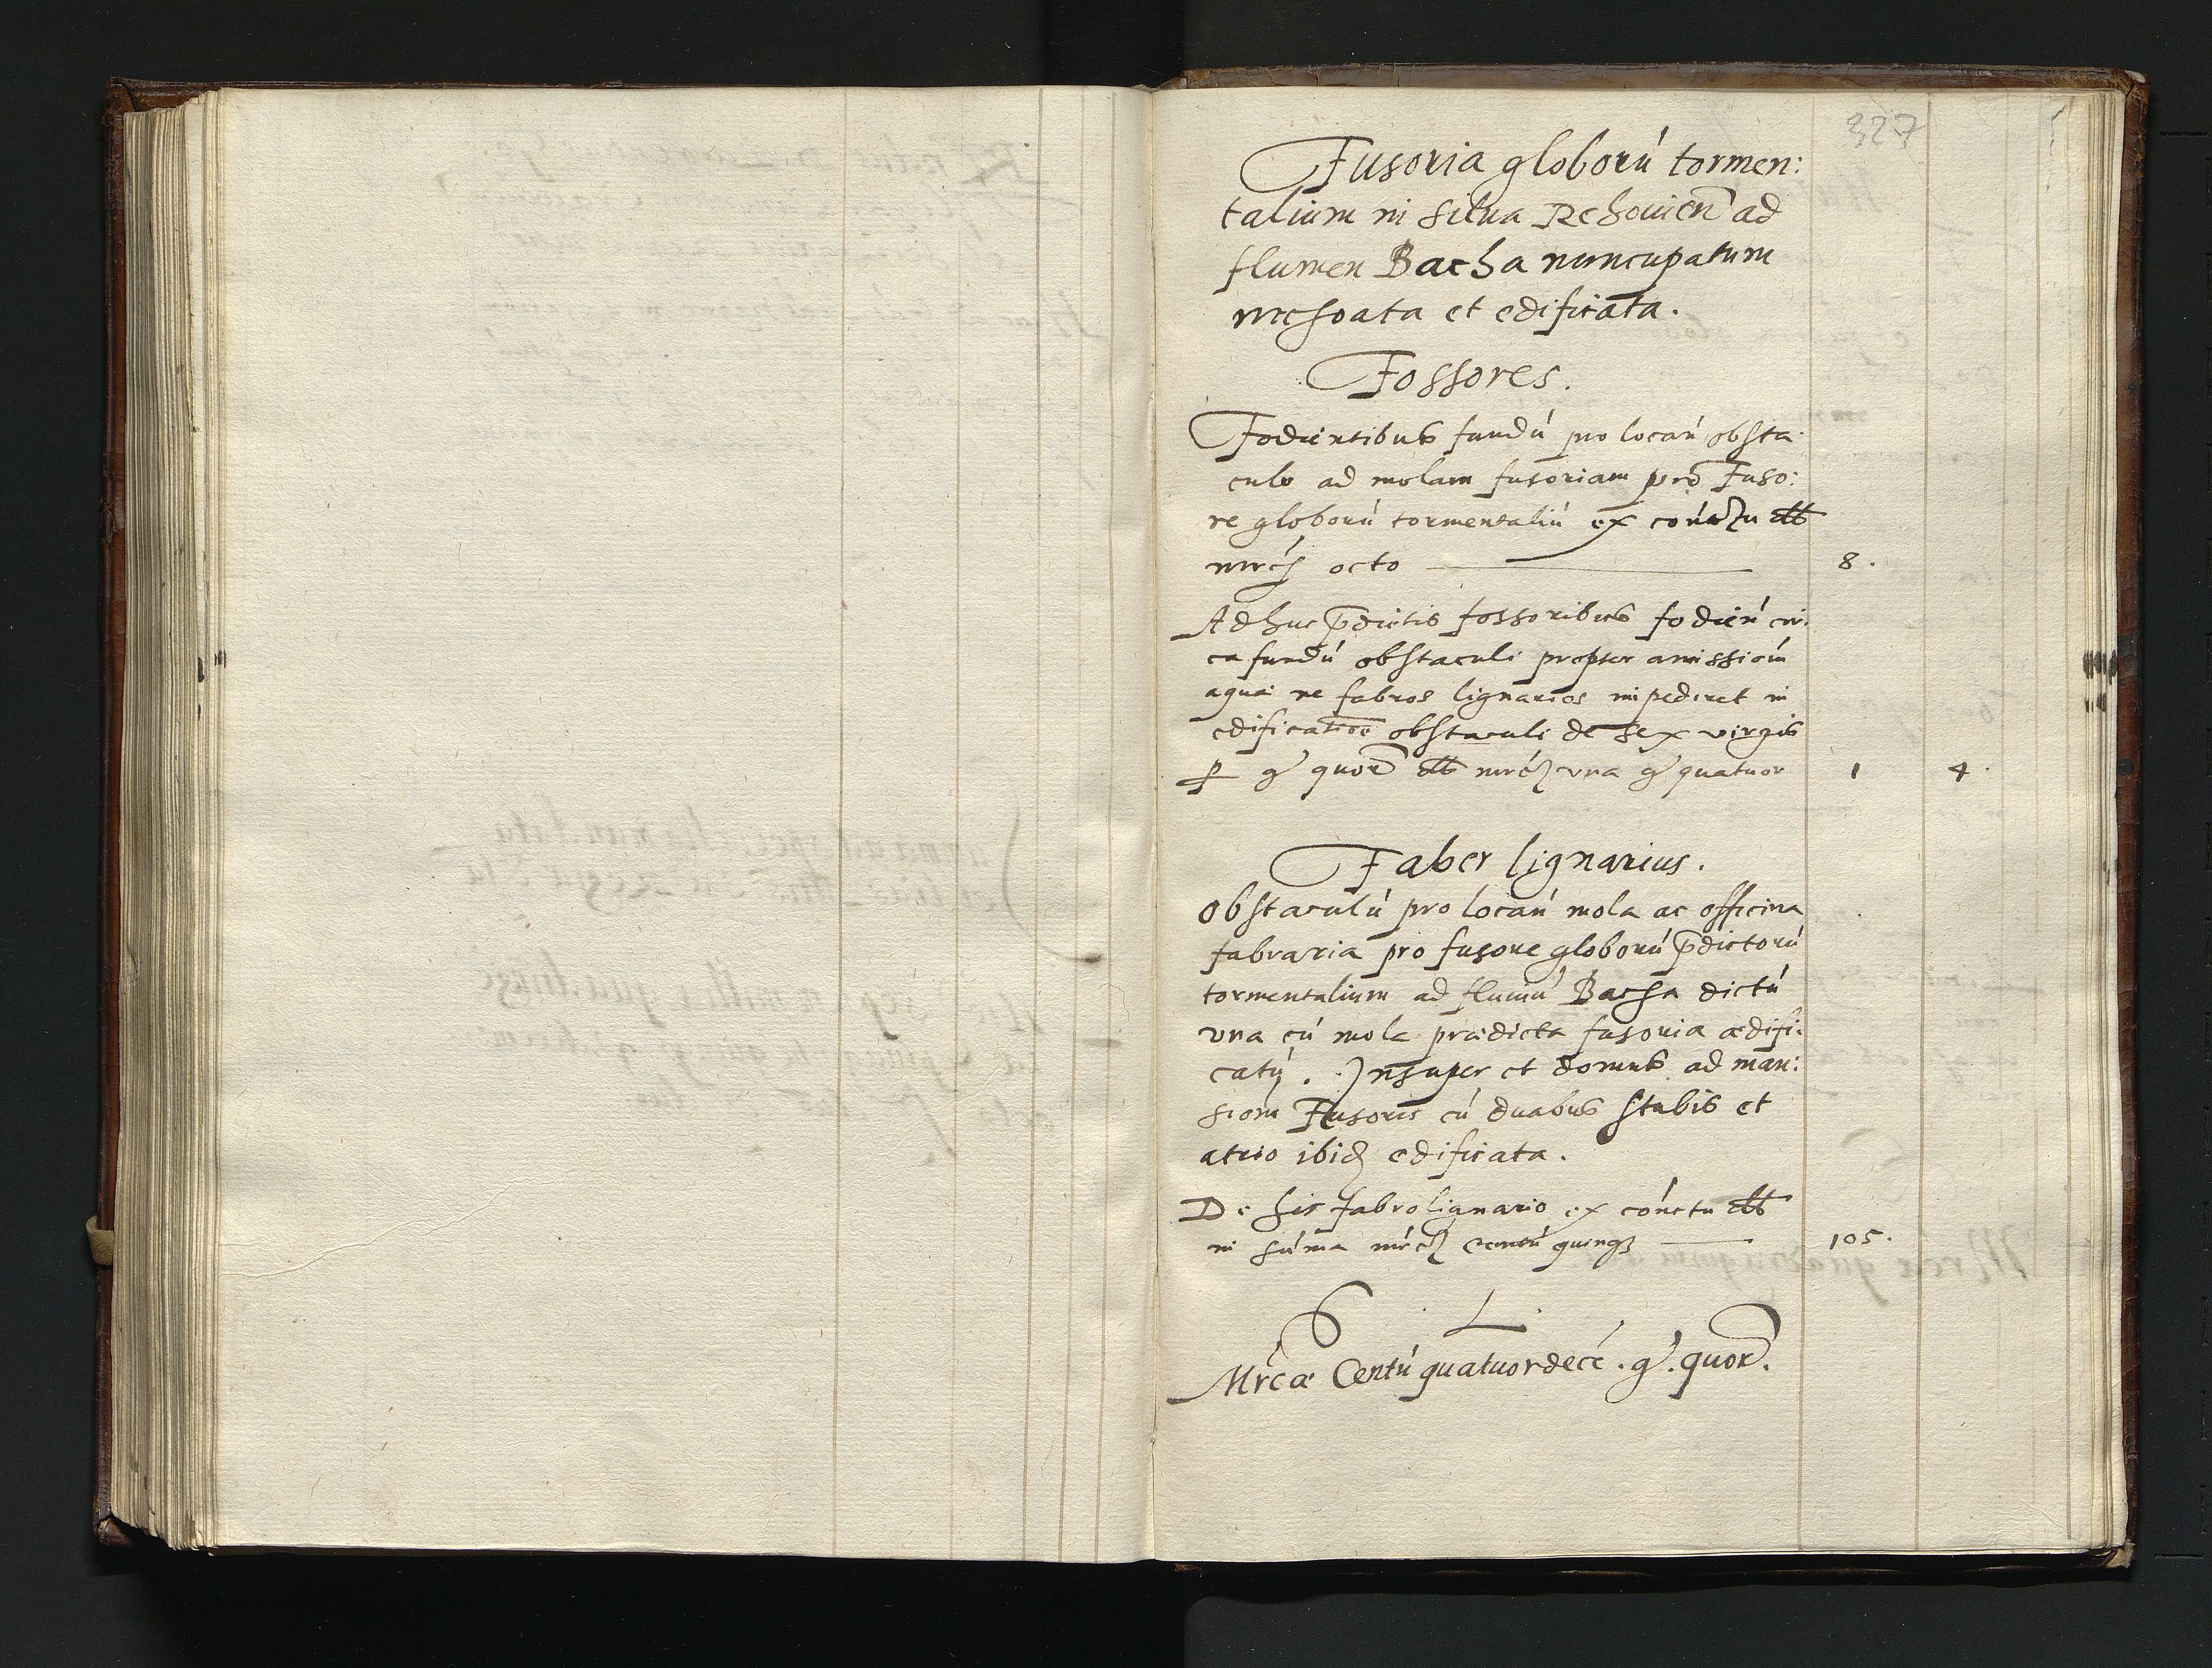 327
Fusoria gloború tormen:
talium in silua Rehouień ad
flumen Bacha nuncupatum
inchoata et edificata.
Fossores.
Fodientibus fundú pro locań obsta
culo ad molam fusoriam pro Fuso:
re gloború tormentaliú ex
octo 8.
Adhuc p̄dictis fossoribus fodień cir:
ca fundú obstaculi propter
aquæ ne fabros lignarios impediret in
edificatioē obstaculi de sex virgis
p g quor una g quatuor 1 4.
Faber lignarius.
Obstaculú pro locań mola ac officina
fabraria pro fusore gloború p̄dictorú
tormentalium ad fluuiú Bacha dictú
vna cú mola prædicta fusoria ædifi:
catú. Insuper et domus ad man:
sioń Fusoris cú duabus stubis et
atrio ibid edificata.
De his fabro lignario ex cónctu
in súma centú quinqꝫ 105.
L
Mrcæ Centú quatuordecē. g. quor.